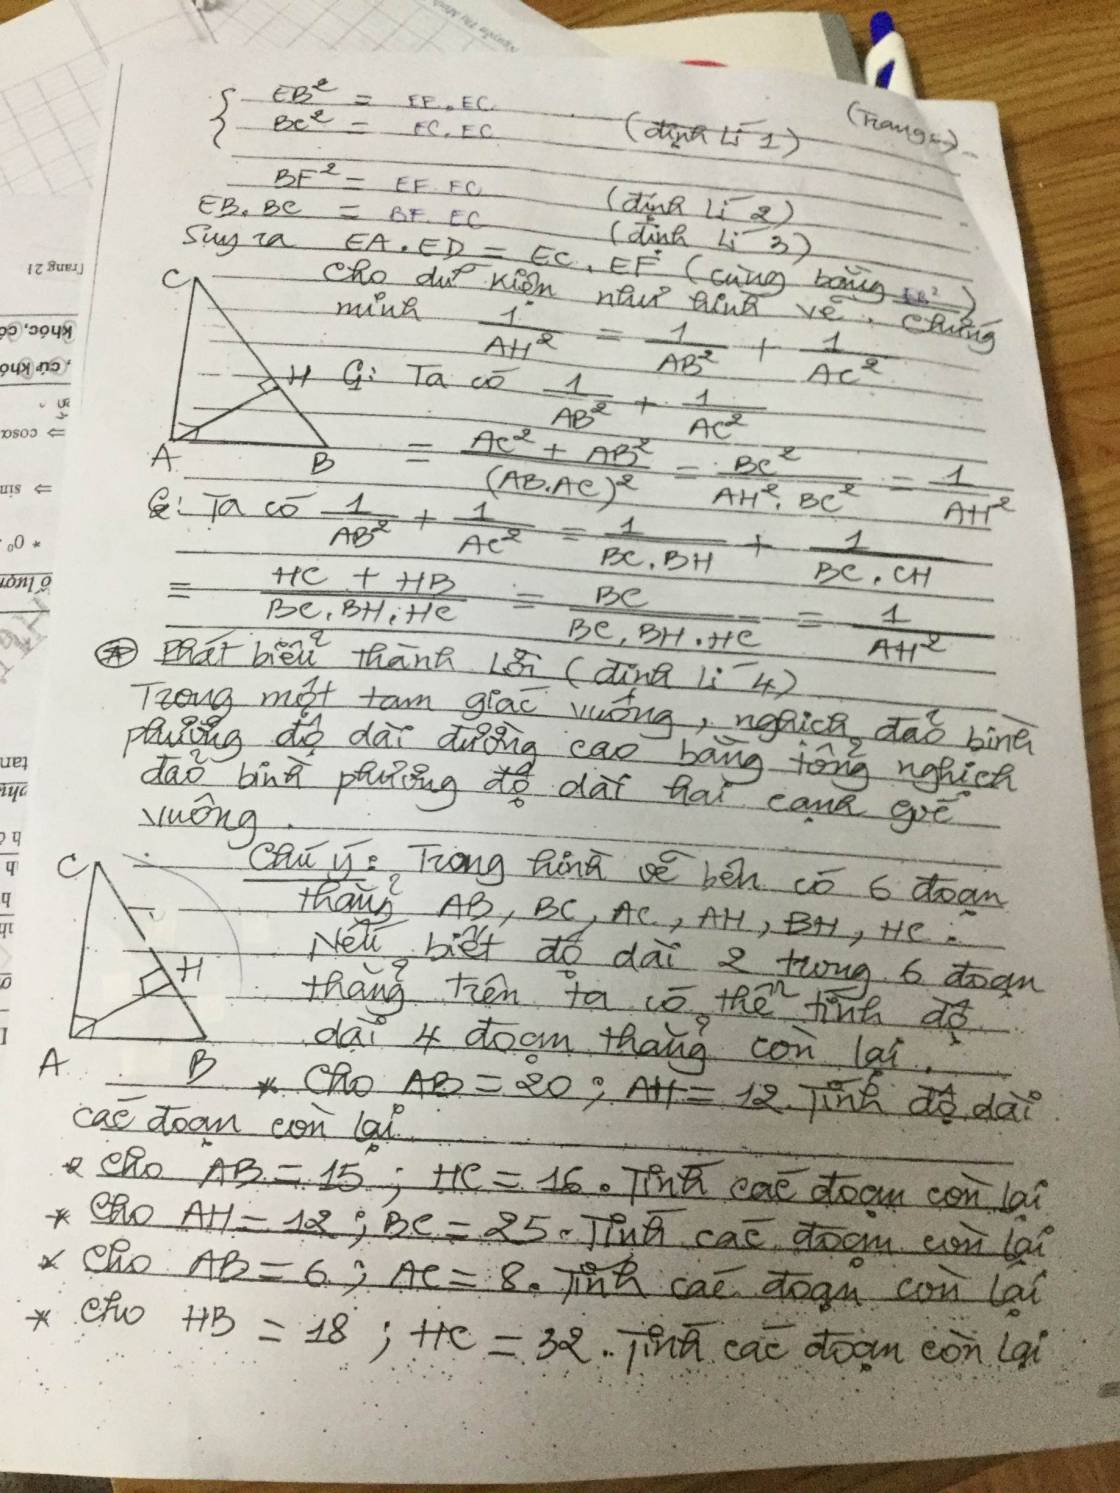 EB² = EF.EC
BC² = EC.EC (định lí 1)
BF² = EF.FC (định lí 2)
EB.BC = BF.EC (định lí 3)
Suy ra EA.ED = EC.EF (cùng bằng EB²)
Cho dữ kiện như hình vẽ. Chứng
minh 1/AH² = 1/AB² + 1/AC²
G: Ta có 1/AB² + 1/AC²
= AC² + AB²/(AB.AC)² = BC²/AH².BC² = 1/AH²
G: Ta có 1/AB² + 1/AC² = 1/BC.BH + 1/BC.CH
= HC + HB/BC.BH.HC = BC/BC.BH.HC = 1/AH²
Phát biểu thành lời (định lí 4)
Trong một tam giác vuông, nghịch đảo bình
phương độ dài đường cao bằng tổng nghịch
đảo bình phương độ dài hai cạnh góc
vuông.
C
H
A
B
Chú ý: Trong hình vẽ bên có 6 đoạn
thẳng AB, BC, AC, AH, BH, HC.
Nếu biết độ dài 2 trong 6 đoạn
thẳng trên ta có thể tính độ
dài 4 đoạn thẳng còn lại.
C
H
A
B
* Cho AB = 20; AH = 12. Tính độ dài
các đoạn còn lại
* Cho AB = 15; HC = 16. Tính các đoạn còn lại
* Cho AH = 12; BC = 25. Tính các đoạn còn lại
* Cho AB = 6; AC = 8. Tính các đoạn còn lại
* Cho HB = 18; HC = 32. Tính các đoạn còn lại
Trang 21
khóc, cô
⇒ cosα
⇒ sin
* 0°
tan